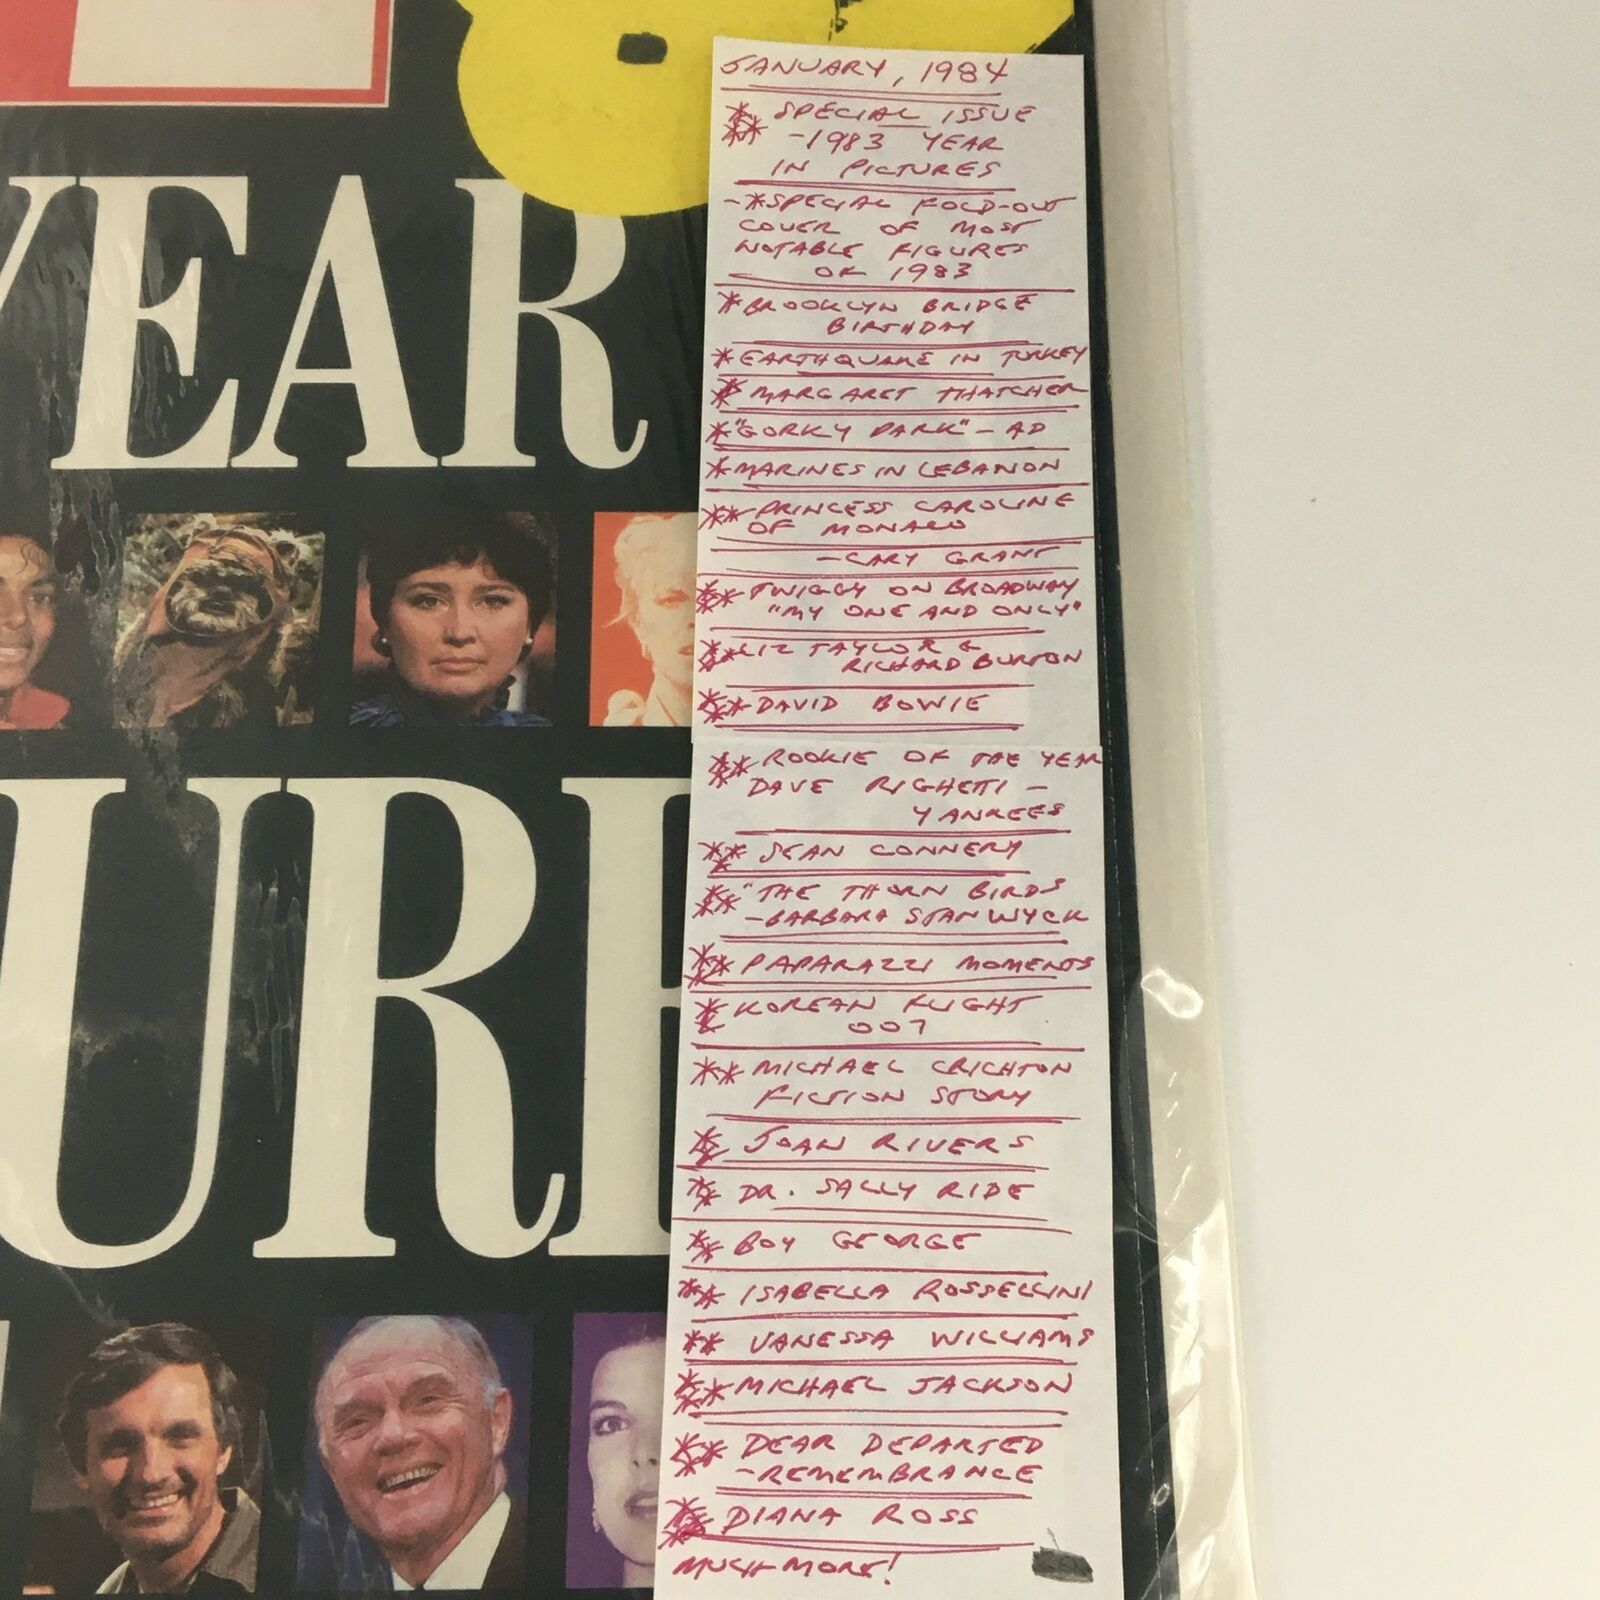 YEAR
URE
JANUARY, 1984
*** SPECIAL ISSUE
-1983 YEAR
IN PICTURES
-*SPECIAL FOLD-OUT
COVER OF MOST
NOTABLE FIGURES
OF 1983
*BROOKLYN BRIDGE
BIRTHDAY
*EARTHQUAKE IN TURKEY
* MARGARET THATCHER
*"GORKY PARK" - AD
*MARINES IN LEBANON
** PRINCESS CAROLINE
OF MONACO
-CARY GRANT
*** TWIGGY ON BROADWAY
"MY ONE AND ONLY"
*** LIZ TAYLOR &
RICHARD BURTON
*** DAVID BOWIE
*** ROOKIE OF THE YEAR
DAVE RIGHETTI -
YANKEES
*** SEAN CONNERY
*** "THE THORN BIRDS
-BARBARA STANWYCK
*** PAPARAZZI MOMENTS
** KOREAN FLIGHT
007
** MICHAEL CRICHTON
FICTION STORY
** JOAN RIVERS
** DR. SALLY RIDE
** BOY GEORGE
** ISABELLA ROSSELLINI
** VANESSA WILLIAMS
*** MICHAEL JACKSON
*** DEAR DEPARTED
-REMEMBRANCE
*** DIANA ROSS
MUCH MORE!